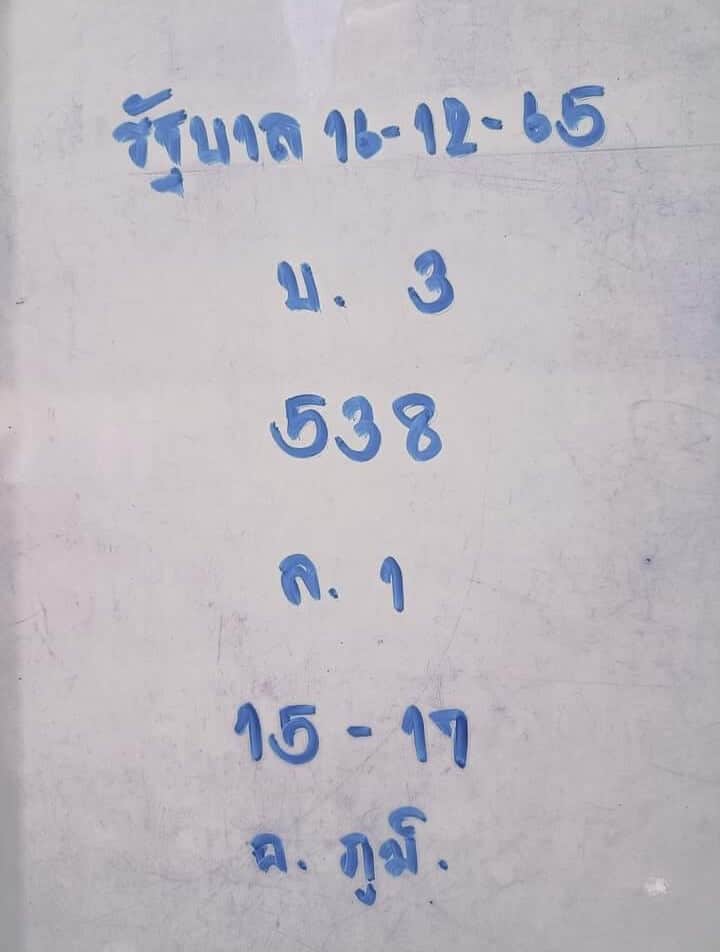 รัฐบาล 16-12-65
บ. 3
538
ล. 1
15-17
อ. ภูมิ.